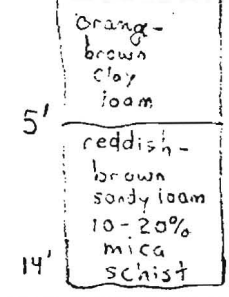 orange-
brown
clay
loam
5'
reddish-
brown
sandy loam
10-20%
mica
14' schist